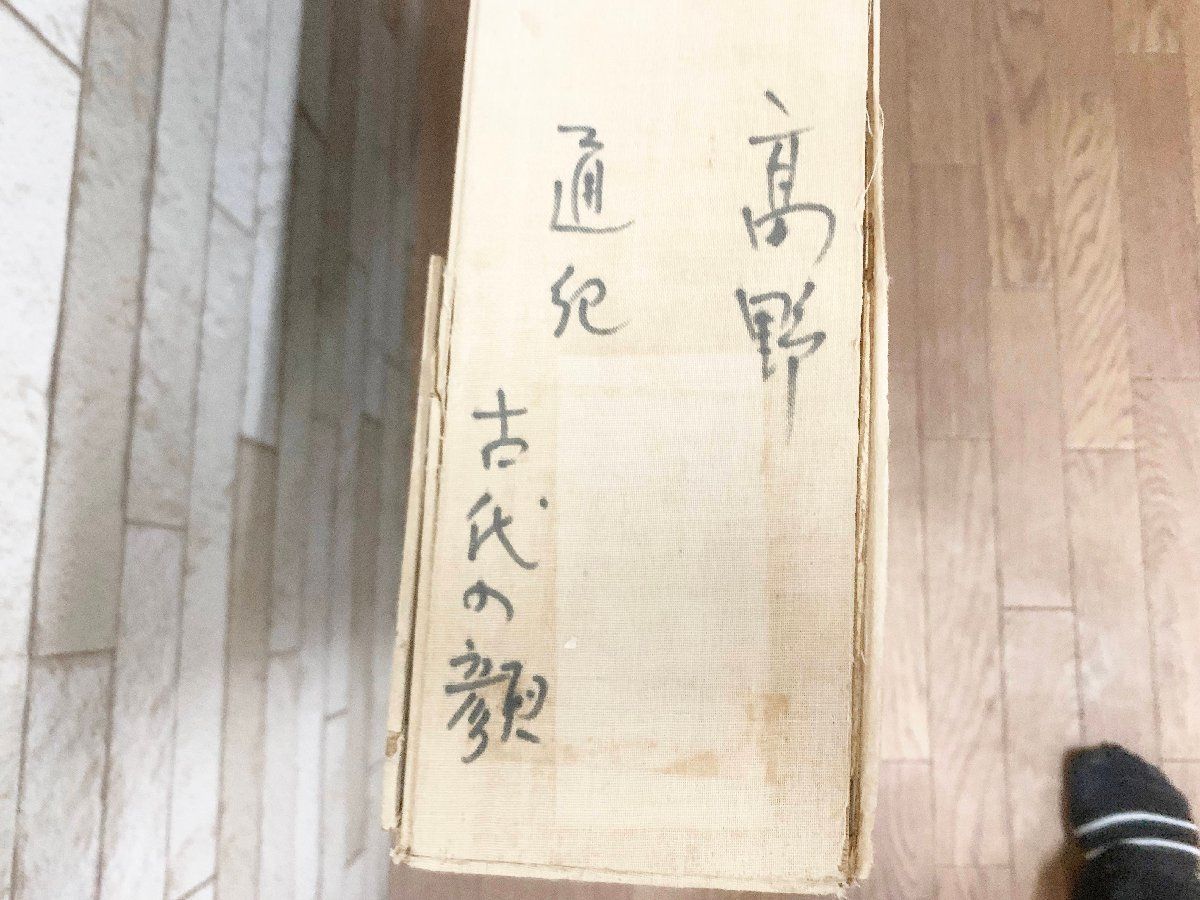 高野
通犯
古代の顔